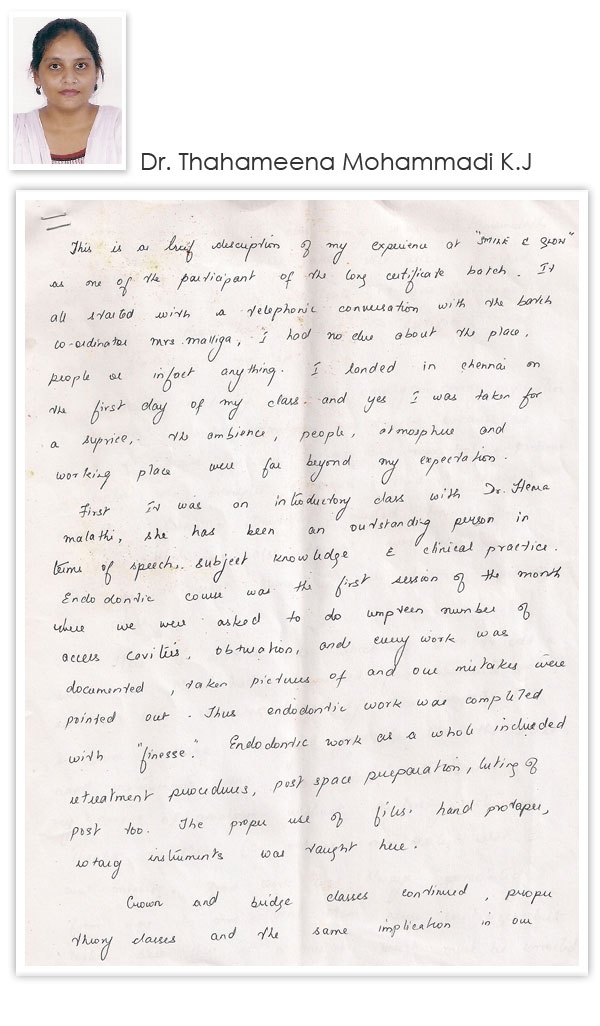 Dr. Thahameena Mohammadi K.J
This is a brief description of my experience at "SMILE & GLOW"
as one of the participant of the long certificate batch. It
all started with a telephonic conversation with the batch
co-ordinator mrs. malliga, I had no clue about the place,
people or infact anything. I landed in chennai on
the first day of my class. and yes I was taken for
a suprice, the ambience, people, atmosphere and
working place were far beyond my expectation.
First It was an introductory class with Dr. Hema
malathi, she has been an outstanding person in
terms of speech, subject knowledge & clinical practice.
Endodontic course was the first session of the month
where we were asked to do umpteen number of
access cavities, obturation, and every work was
documented, taken pictures of and our mistakes were
pointed out. Thus endodontic work was completed
with "finesse." Endodontic work as a whole included
retreatment procedures, post space preparation, luting of
post too. The proper use of files, hand protaper,
rotary instruments was taught here.
Crown and bridge classes continued, proper
theory classes and the same implication in our